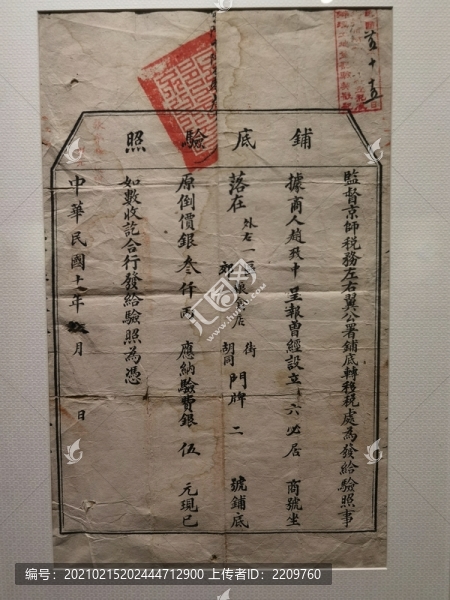 鋪底驗照
監督京師稅務左右翼公署鋪底轉移稅處為發給驗照事
據商人趙 中呈報曾經設立六必居商號坐
落在外左一區 街 胡同門牌二號鋪底
原倒價銀叁仟両應納驗費銀伍元現已
如數收訖合行發給驗照為憑
中華民國十 年 月 日
汇图网
编号：20210215202444712900 上传者ID：2209760